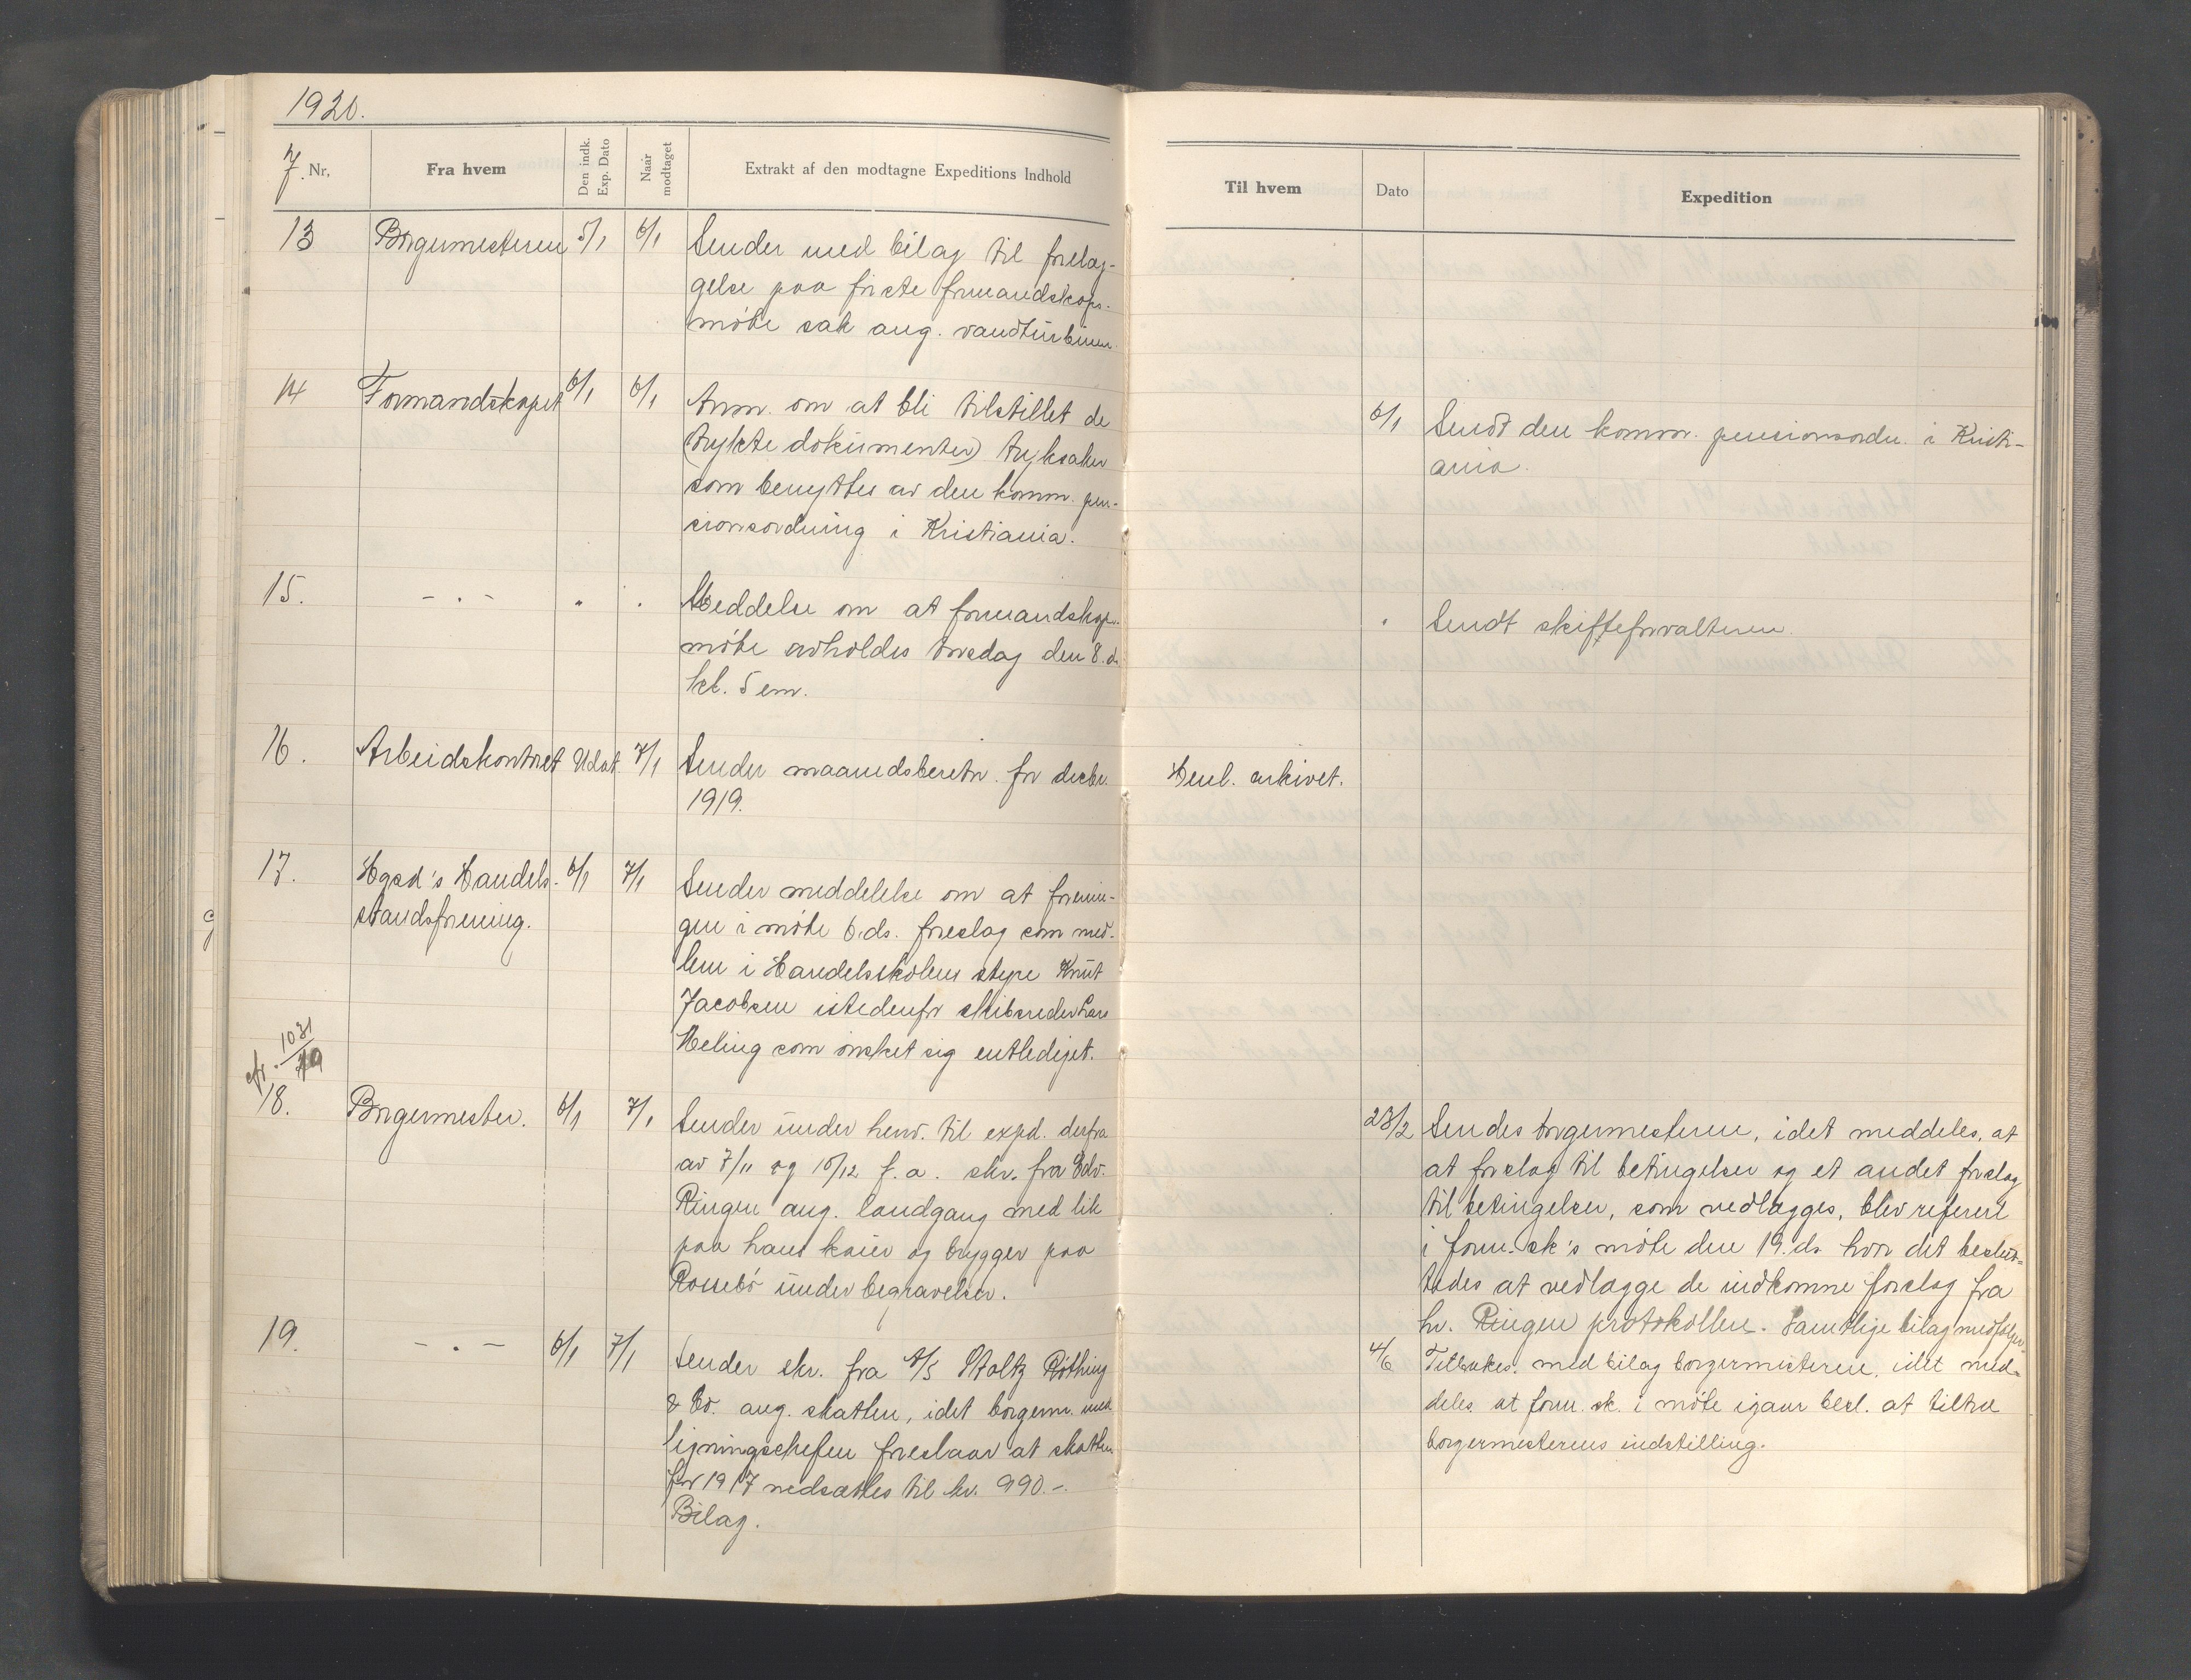 1920.
7.
Nr.
Fra hvem
Den indk. Exp. Dato
Naar modtaget
Extrakt af den modtagne Expeditions Indhold
Til hvem
Dato
Expedition
13 Borgermesteren 5/1 6/1 Sender med bilag til forelæg-
gelse paa første formandskaps-
møte sak ang. vandturbinen.
14 Formandskapet 6/1 6/1 Anm. om at bli tilstillet de
(trykte dokumenter) tryksaker
som benyttes av den komm. pen-
sionsordning i Kristiania.
6/1 Sendt den komm. pensionsordn. i Kristi-
ania.
15. - " - " " Meddelse om at formandskaps-
møte avholdes torsdag den 8. ds.
kl. 5 em.
" Sendt skifteforvalteren.
16. Arbeidskontoret Udat. 7/1 Sender maanedsberetn. for decbr.
1919.
Henl. arkivet.
17. Hgsd's Handels- 6/1 7/1 Sender meddelelse om at forenin-
standsforening.
gen i møte 6. ds. foreslog som med-
lem i Handelsskolens styre Knut
Jacobsen istedenfor skibsreder Lars
Meling som ønsket sig entlediget.
cfr. 1031/19
18. Borgermester. 6/1 7/1 Sender under henv. til expd. derfra
av 7/11 og 10/12 f.a. skr. fra Edv.
Ringen ang. landgang med lik
paa hans kaier og brygger paa
Rossebø under begravelser.
23/2 Sendes borgermesteren, idet meddeles, at
at forslag til betingelser og et andet forslag
til betingelser, som vedlægges, blev referert
i form.sk's møte den 19. ds. hvor det beslut-
tedes at vedlægge de indkomne forslag fra
hr. Ringen protokollen. Samtlige bilag medfølger.
19. - " - 6/1 7/1 Sender skr. fra A/S Stoltz Røthing
& Co. ang. skatten, idet borgerm. med
ligningschefen foreslaar at skatten
for 1917 nedsættes til kr. 990.-.
Bilag.
4/6 Tilbakes. med bilag borgermesteren, idet med-
deles at form.sk. i møte igaar besl. at tiltræ
borgermesterens indstilling.